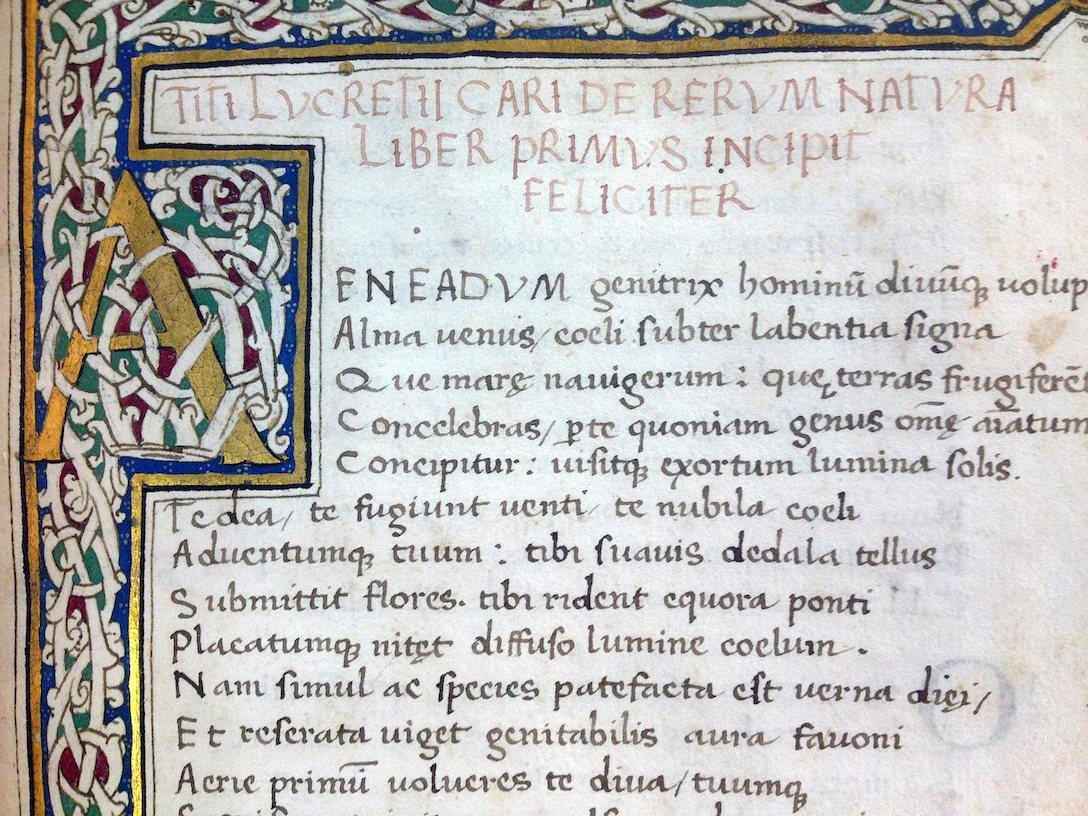 TITI LVCRETII CARI DE RERVM NATVRA
LIBER PRIMVS INCIPIT
FELICITER
AENEADVM genitrix hominū diuūq; uolup
Alma uenus/ coeli subter labentia signa
Que marę nauigerum : quę terras frugiferēt
Concelebras/ ꝑte quoniam genus om̄ę aīatum
Concipitur : uisitq; exortum lumina solis.
Te dea/ te fugiunt uenti/ te nubila coeli
Aduentumq; tuum : tibi suauis dedala tellus
Submittit flores. tibi rident equora ponti
Placatumq; nitęt diffuso lumine coelum.
Nam simul ac species patefacta est uerna dięi/
Et reserata uiget genitabilis aura fauoni
Aerie primū uolucres te diua/ tuumq;